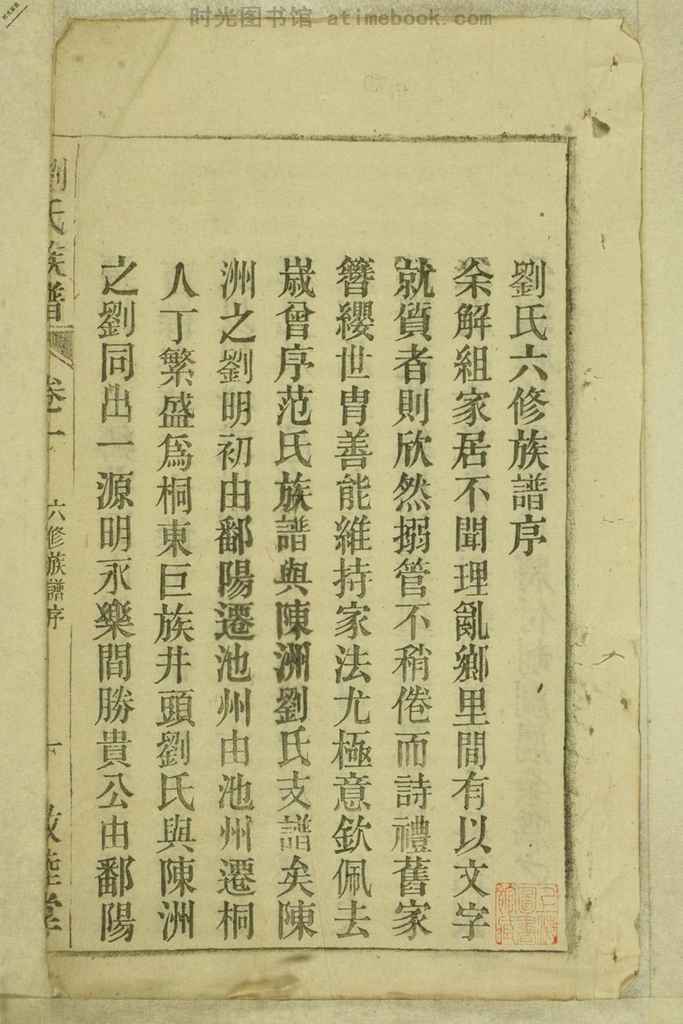 时光图书馆 atimebook.com
劉氏六修族譜序
余解組家居不聞理亂鄉里間有以文字
就質者則欣然搦管不稍倦而詩禮舊家
簪纓世胄善能維持家法尤極意欽佩去
歲曾序范氏族譜與陳洲劉氏支譜矣陳
洲之劉明初由鄱陽遷池州由池州遷桐
人丁繁盛爲桐東巨族井頭劉氏與陳洲
之劉同出一源明永樂間勝貴公由鄱陽
劉氏族譜
卷一
六修族譜序
一